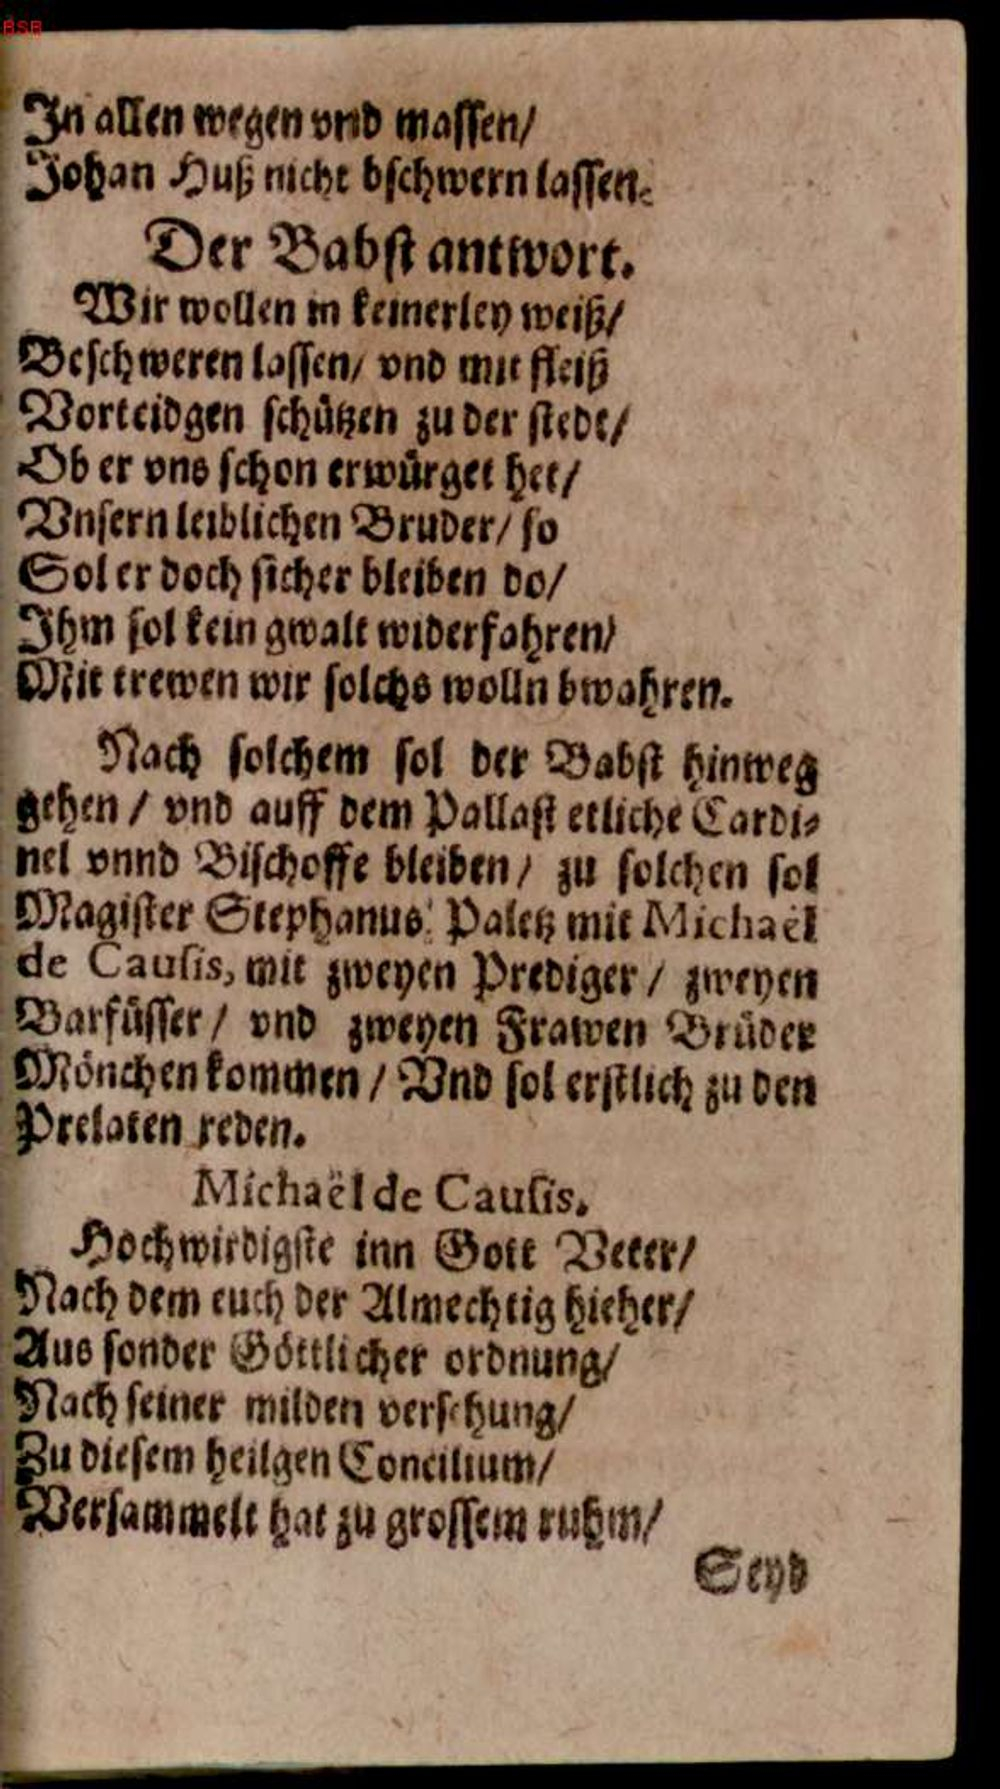 BSB
In allen wegen vnd massen/
Johan Huß nicht bschwern lassen.
Der Babst antwort.
Wir wollen in keinerley weiß/
Beschweren lassen/ vnd mit fleiß
Vorteidgen schützen zu der stedt/
Ob er vns schon erwürget het/
Vnsern leiblichen Bruder/ so
Sol er doch sicher bleiben do/
Ihm sol kein gwalt widerfahren/
Mit trewen wir solchs wolln bwahren.
Nach solchem sol der Babst hinweg
gehen / vnd auff dem Pallast etliche Cardi-
nel vnnd Bischoffe bleiben / zu solchen sol
Magister Stephanus Paletz mit Michaël
de Causis, mit zweyen Prediger / zweyen
Barfüsser / vnd zweyen Frawen Brüder
Mönchen kommen / Vnd sol erstlich zu den
Prelaten reden.
Michaël de Causis.
Hochwirdigste inn Gott Veter/
Nach dem euch der Almechtig hieher/
Aus sonder Göttlicher ordnung/
Nach seiner milden versehung/
Zu diesem heilgen Concilium/
Versammelt hat zu grossem ruhm/
Seyd